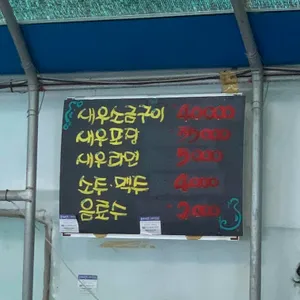 새우소금구이 40000
새우포장 35000
새우라면 5000
소주·맥주 4000
음료수 2000